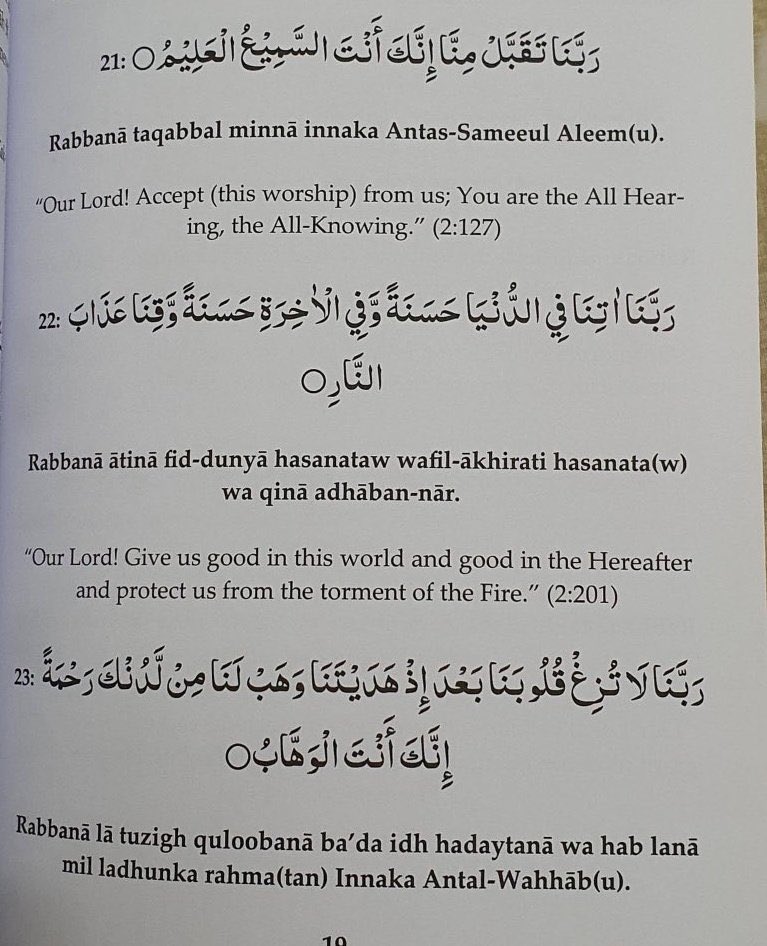 21: رَبَّنَا تَقَبَّلْ مِنَّا إِنَّكَ أَنْتَ السَّمِيْعُ الْعَلِيْمُ○
Rabbanā taqabbal minnā innaka Antas-Sameeul Aleem(u).
“Our Lord! Accept (this worship) from us; You are the All Hear-
ing, the All-Knowing.” (2:127)
22: رَبَّنَا اٰتِنَا فِي الدُّنْيَا حَسَنَةً وَّفِي الْاٰخِرَةِ حَسَنَةً وَّقِنَا عَذَابَ
النَّارِ○
Rabbanā ātinā fid-dunyā hasanataw wafil-ākhirati hasanata(w)
wa qinā adhāban-nār.
“Our Lord! Give us good in this world and good in the Hereafter
and protect us from the torment of the Fire.” (2:201)
23: رَبَّنَا لَا تُزِغْ قُلُوبَنَا بَعْدَ إِذْ هَدَيْتَنَا وَهَبْ لَنَا مِنْ لَّدُنْكَ رَحْمَةً
إِنَّكَ أَنْتَ الْوَهَّابُ○
Rabbanā lā tuzigh quloobanā ba’da idh hadaytanā wa hab lanā
mil ladhunka rahma(tan) Innaka Antal-Wahhāb(u).